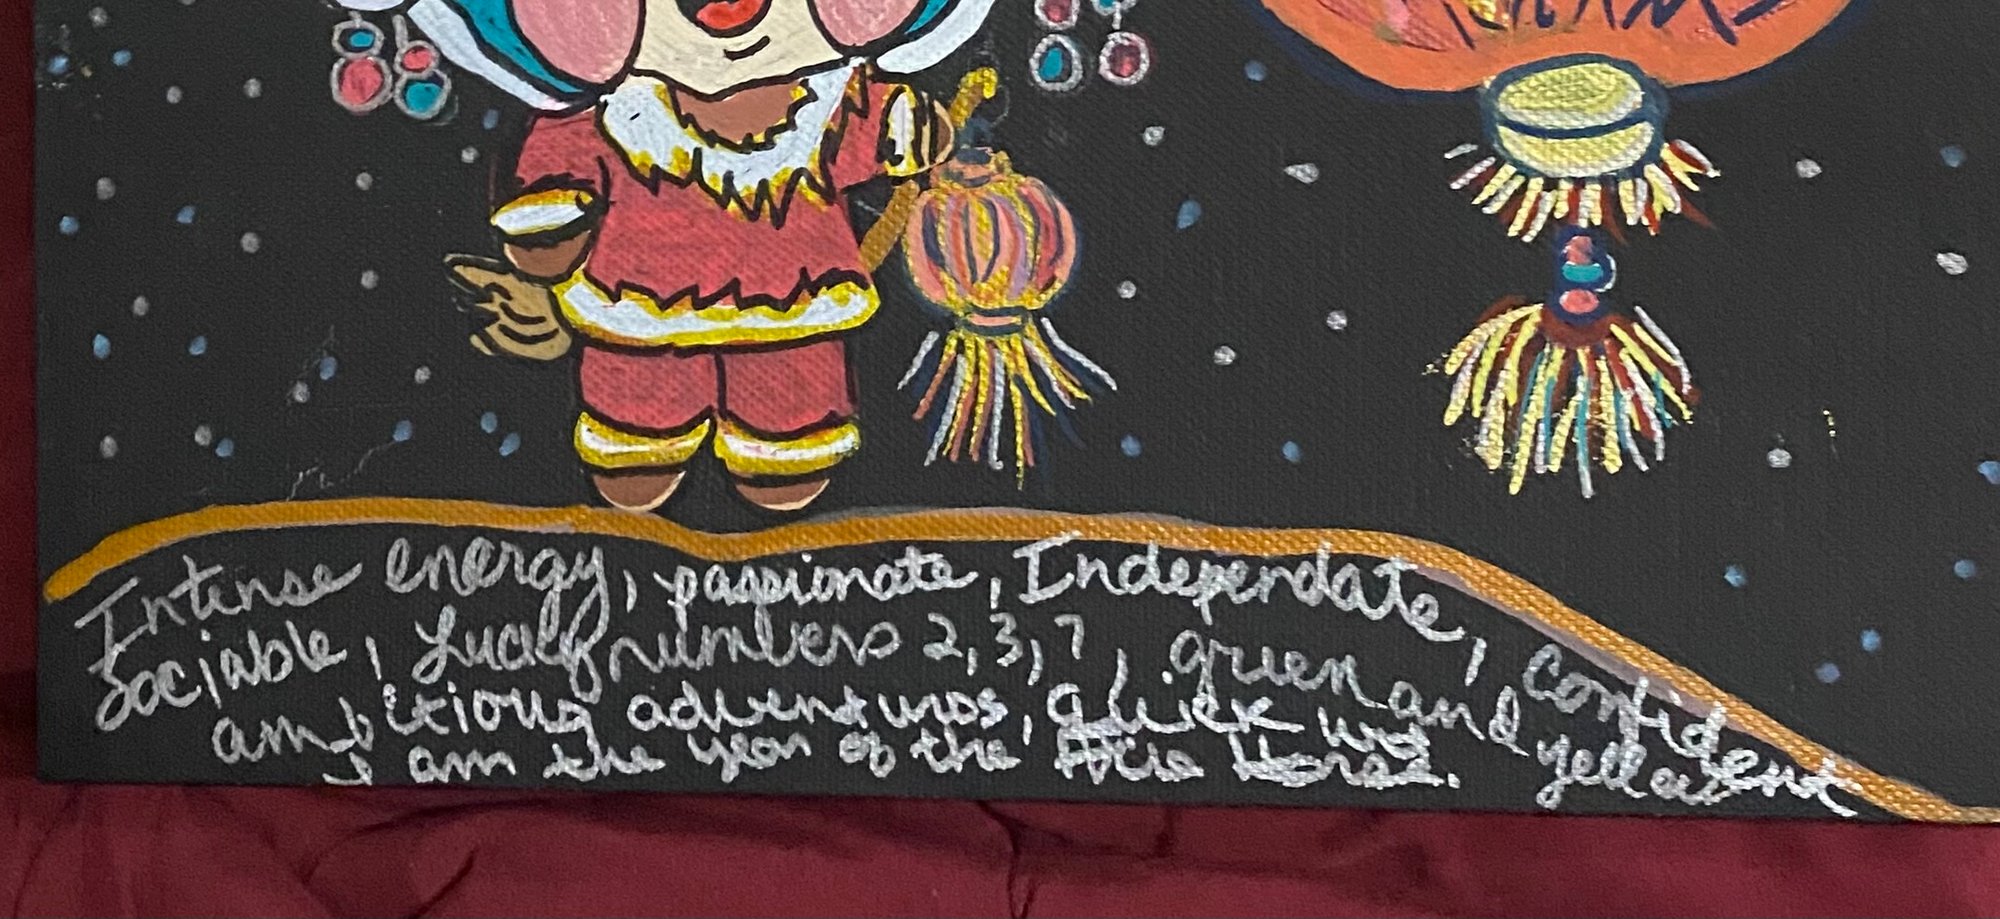 Intense energy, passionate, Independate, confident
sociable, Lucky numbers 2, 3, 7, green and yellow
ambitious adventuros, quick wit
I am the year of the Fire Horse.